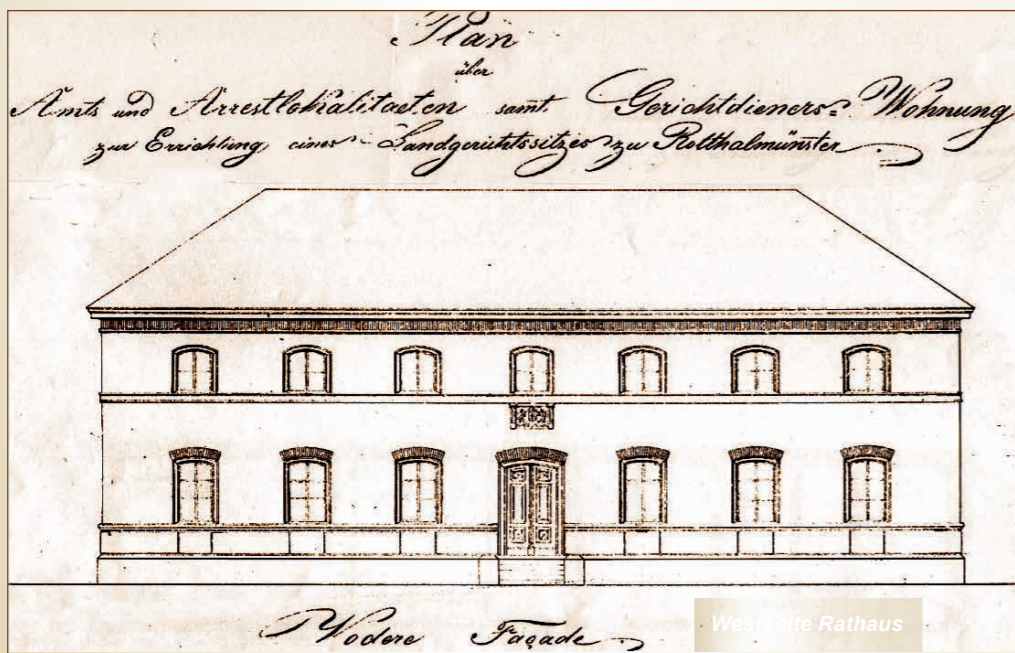 Plan
über
Amts und Arrestlokalitaeten samt Gerichtdieners= Wohnung
zur Errichtung eines Landgerichtssitzes zu Rotthalmünster
Vodere Façade
Westseite Rathaus